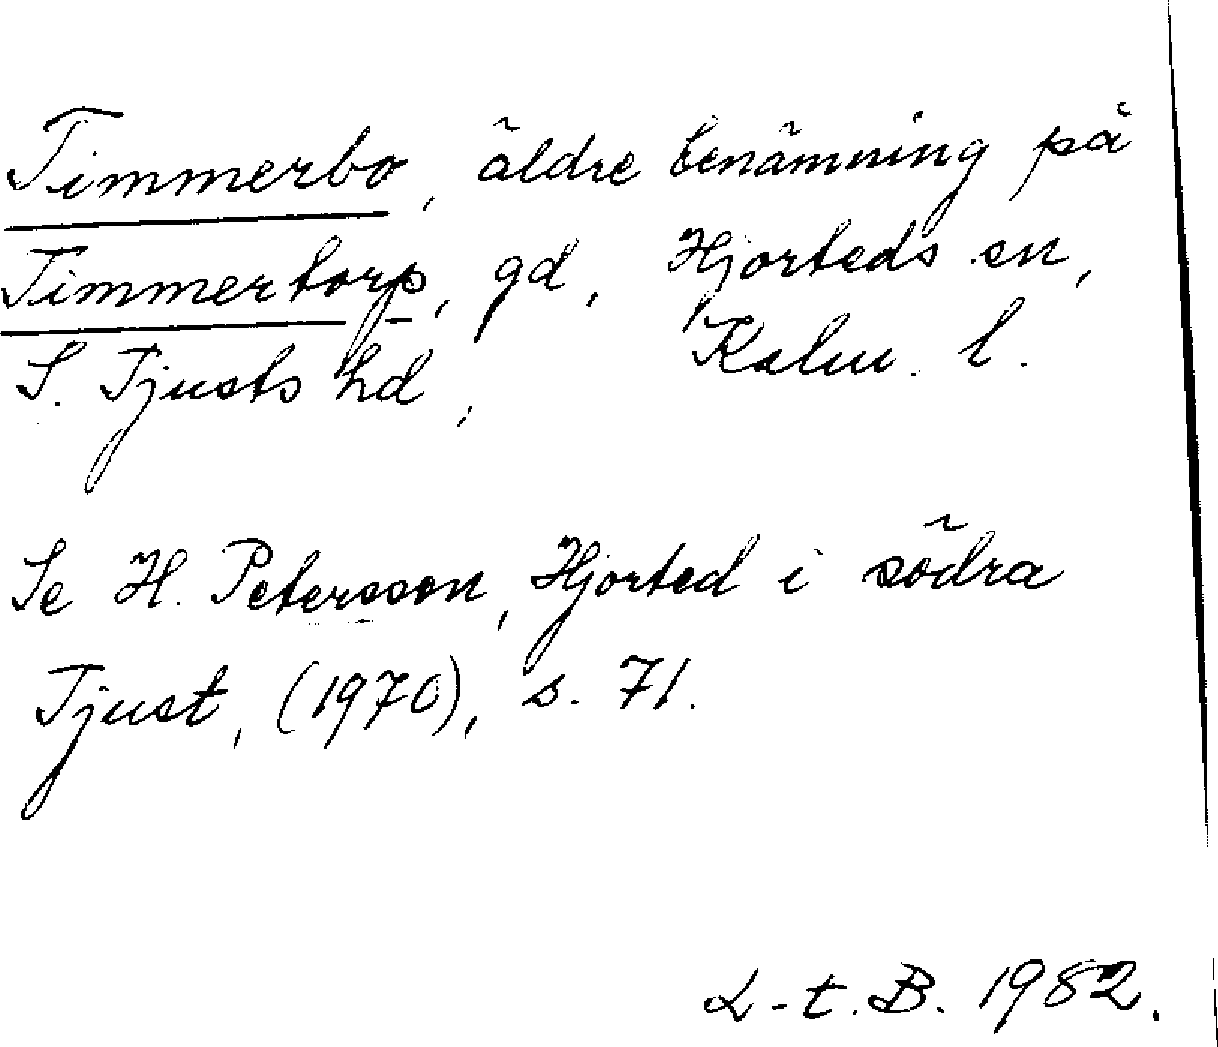 Timmerbo, äldre benämning på
Timmertorp, gd, Hjorteds sn,
S. Tjusts hd, Kalm. l.
Se H. Petersson, Hjorted i södra
Tjust, (1970), s. 71.
L-t. B. 1982.